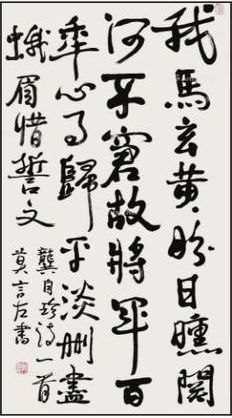 我馬玄黄盼日曛關
河不窘故將軍百
年心事歸平淡刪盡
蛾眉惜誓文
龔自珍詩一首
莫言左書